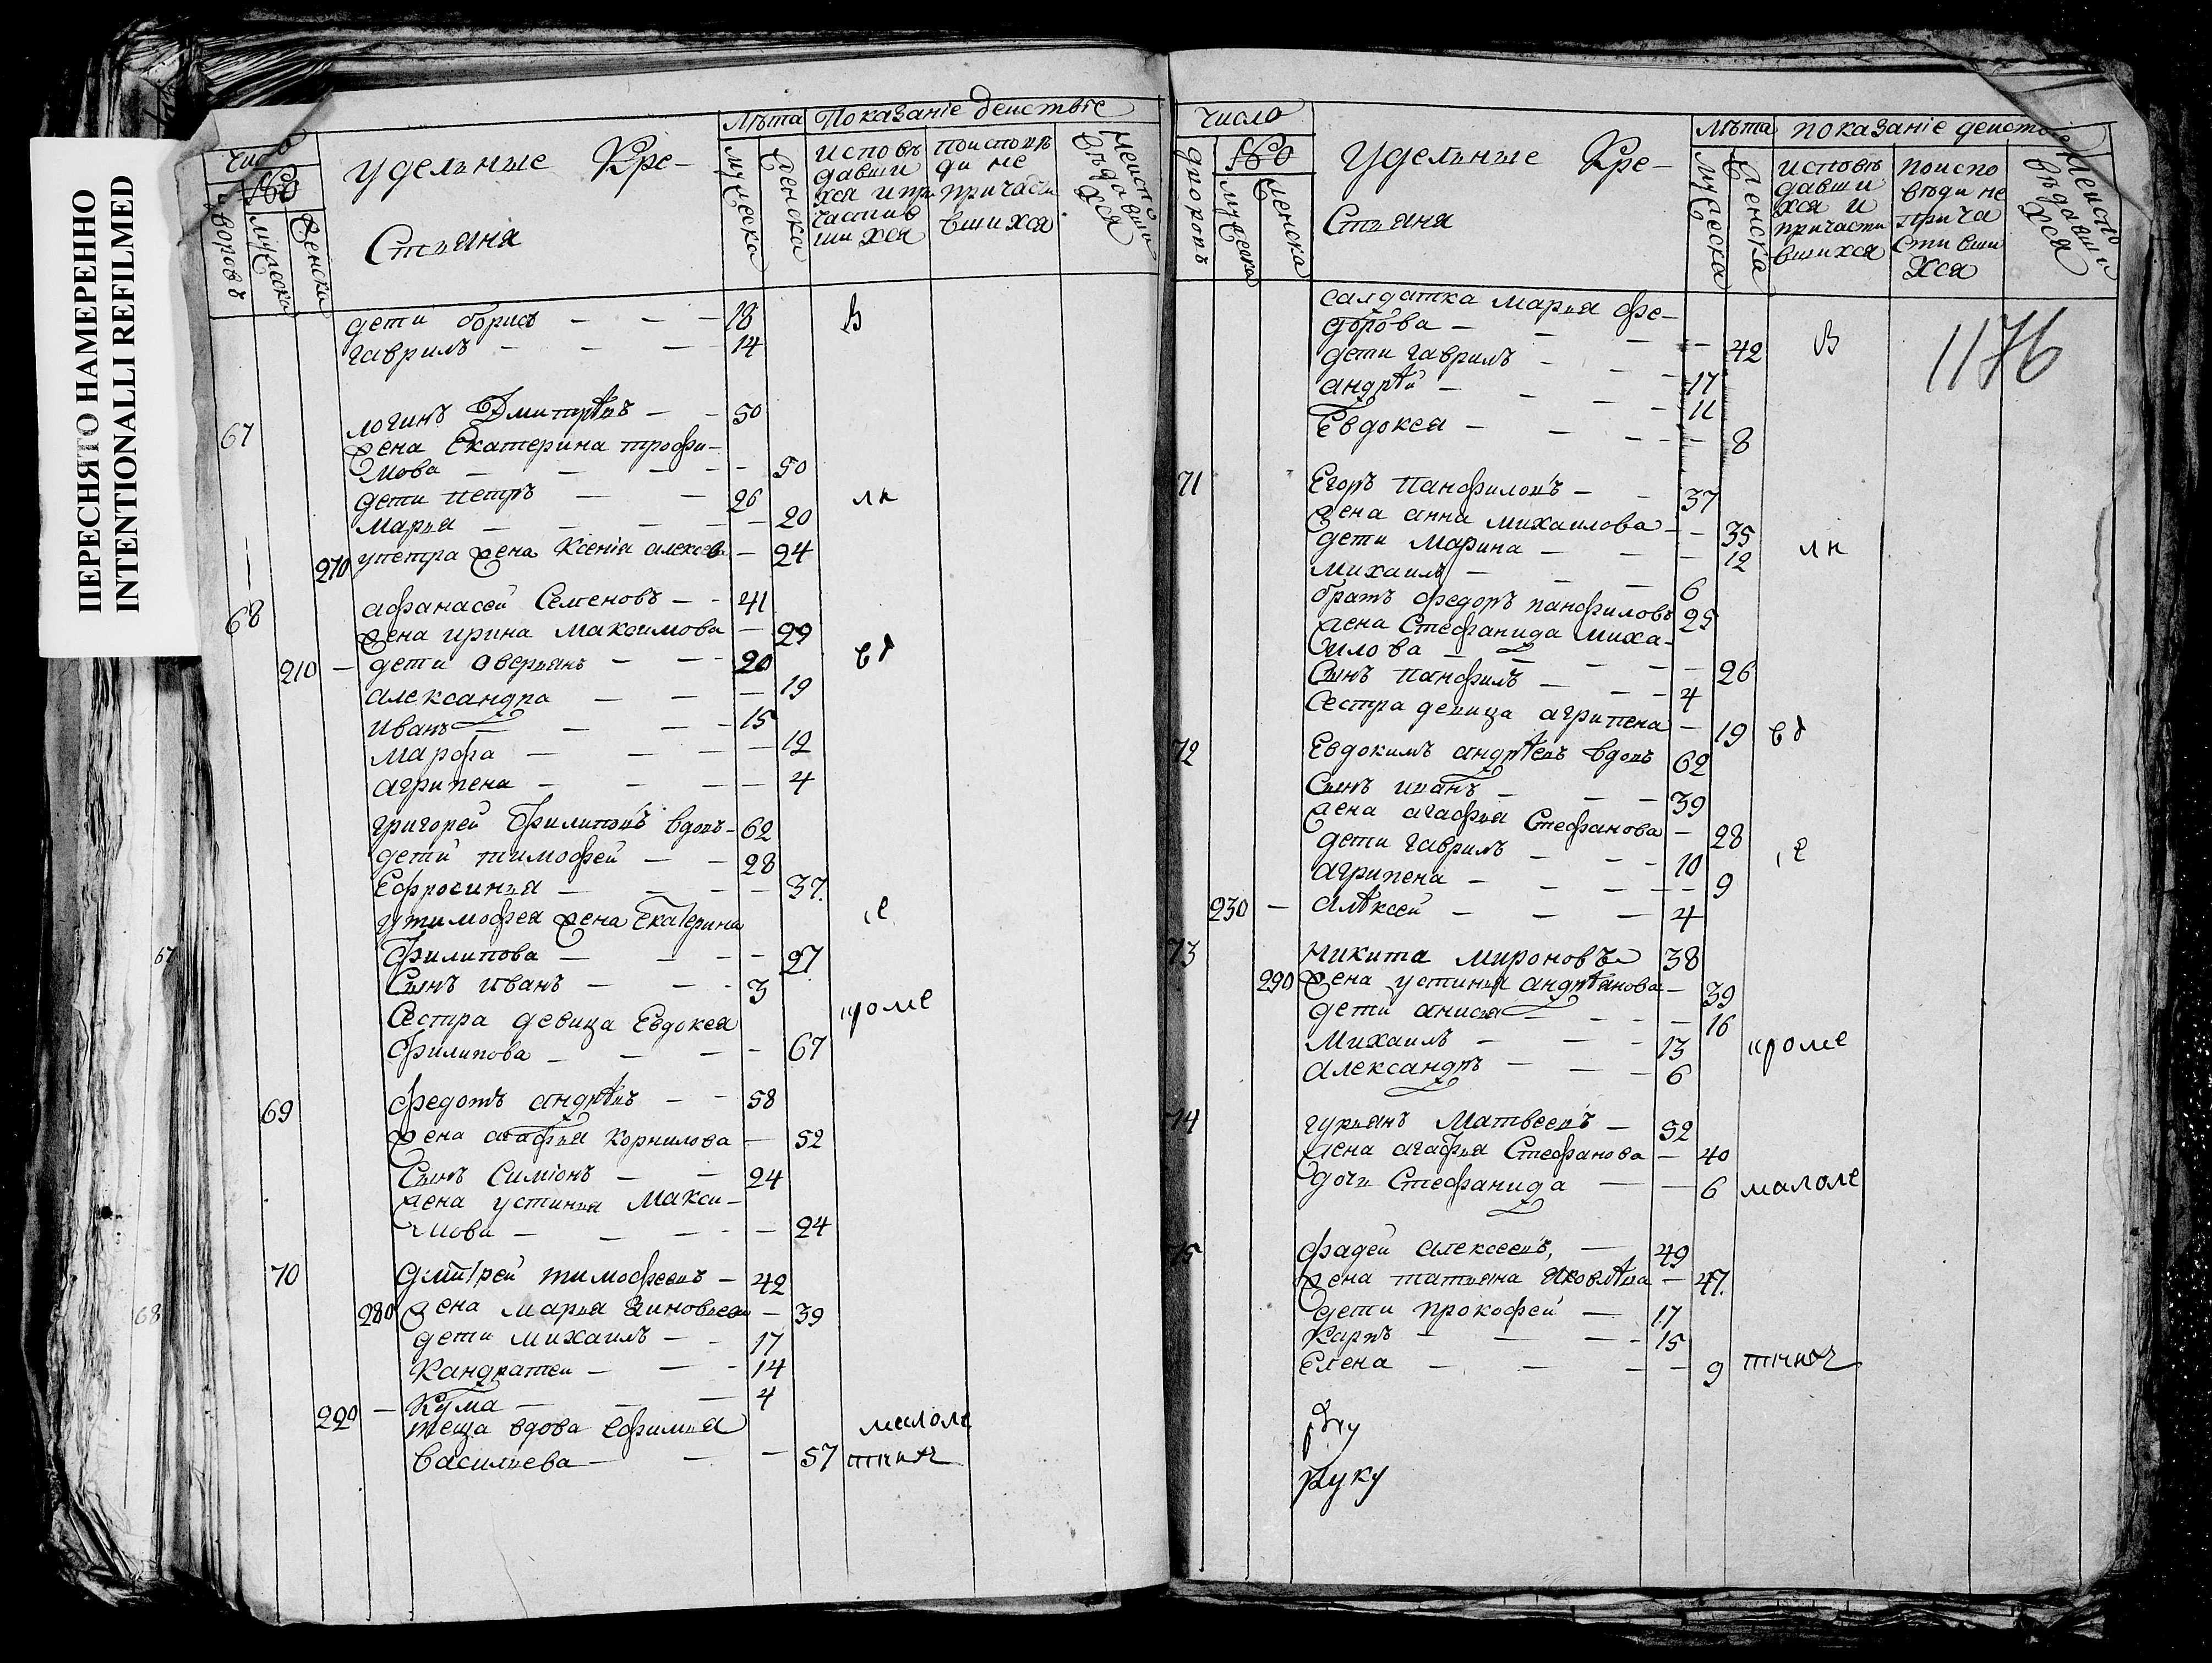 ПЕРЕСНЯТО НАМЕРЕННО
INTENTIONALLI REFILMED
Число
№
дворовъ
мужеска
женска
Удельные Кре-
стьяна
Лѣта
мужеска
женска
Показаніе деиствіе
исповѣ
давши
хся и при
частив
шихся
поисповѣ
ди не
причасти
вшихся
неиспо
вѣдавши
хся
дети борисъ — — — 18 в
гаврилъ — — — 14
67 логинъ Дмитрѣевъ — — 50
жена Екатерина трофи-
мова — — — — 50
дети петръ — — 26 лн
Марья — — — — 20
270 упетра жена Ксенія алексев — 24
68 афанасеи Семеновъ — — 41
жена ирина максимова — 29
210 — дети аверьянъ — — 20
александра — — — 19
иванъ — — — 15
марфа — — — 12
агрипена — — — 4
григореи Филиповъ вдовъ — 62
дети тимофеи — — 28
Ефросинья — — — 37
утимофея жена Екатерина ,е
Филипова — — — 27
Сынъ иванъ — — 3
Сестра девица Евдокея кроме
Филипова — — — 67
69 федотъ андрѣевъ — — 58
жена агафья Корнилова — 52
Сынъ Симіонъ — — 24
жена устинья Макси-
мова — — — — 24
70 Дмитреи тимофеевъ — 42
280 жена марья Зиновьева — 39
дети михаилъ — — 17
Кандратеи — — — 14
220 — Кузма — — — 4
теща вдова Ефимья малоле
Васильева — — — 57 тныхъ
67
68
Число
№
дворовъ
мужеска
женска
Удельные Кре-
Стьяна
лѣта
мужеска
женска
показаніе деиствіе
исповѣ
давши
хся и
причасти
вшихся
поиспо
вѣди не
прича
стивши
хся
неиспо
вѣдавши
хся
1176
салдатка марья фе-
дорова — — — 42 в
дети гаврилъ — — 17
андрѣи — — — 11
Евдокея — — — 8
71 Егоръ Панфиловъ — — 37
жена анна михаилова — — 35
дети Марина — — — 12 лн
михаилъ — — — 6
братъ федоръ панфиловъ 25
жена Стефанида миха-
илова — — — — 26
Сынъ панфилъ — — — 4
Сестра девица агрипена — 19
72 Евдокимъ андрѣевъ вдовъ 62
Сынъ иванъ — — — 39
жена агафья Стефанова — 28
дети гаврилъ — — — 10 ,е
агрипена — — — — 9
230 — алѣксеи — — — 4
73 никита мироновъ 38
290 жена устинья андрѣянова — 39
дети анисья — — — 16
михаилъ — — — 13 кроме
александръ — — — 6
74 гурьянъ Матвеевъ — 52
жена агафья Стефанова — 40
дочь Стефанида — — 6 малоле
75 фадеи алексеевъ, — 49
жена татьяна Яковлѣва — 47.
дети прокофеи — 17
Карпъ — — — 15
Елена — — — — 9 тныхъ
руку